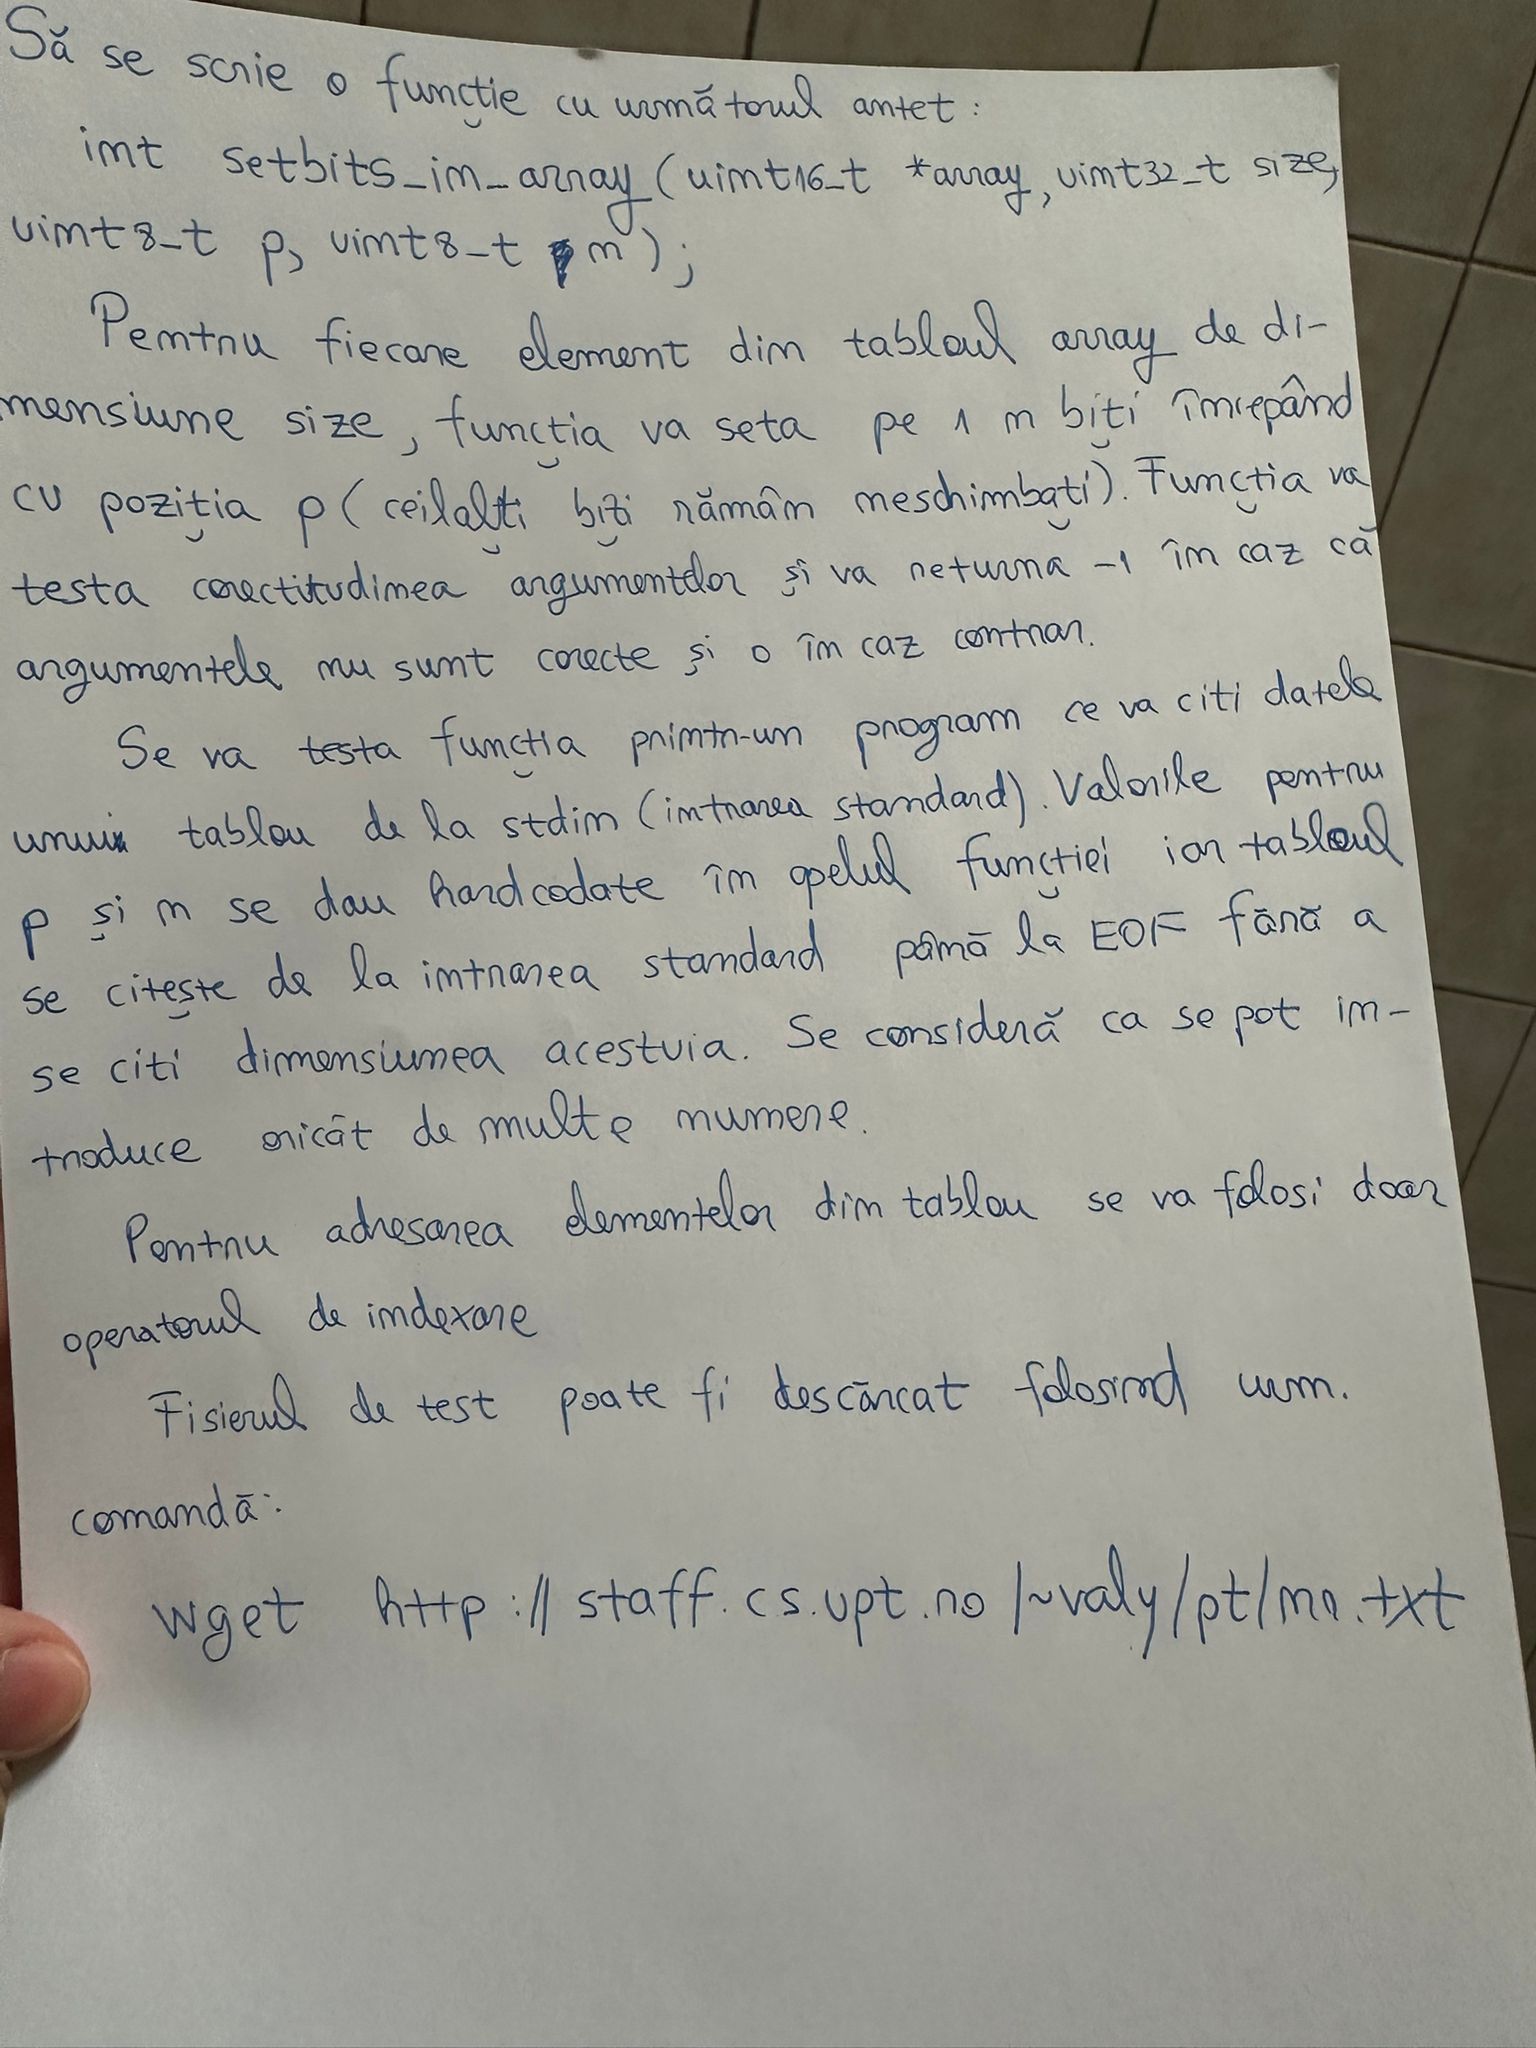 Să se scrie o funcție cu următorul antet:
int setbits_in_array (uint16_t *array, uint32_t size,
uint8_t p, uint8_t n);
Pentru fiecare element din tabloul array de di-
mensiune size, funcția va seta pe 1 n biți începând
cu poziția p (ceilalți biți rămân neschimbați). Funcția va
testa corectitudinea argumentelor și va returna -1 în caz că
argumentele nu sunt corecte și 0 în caz contrar.
Se va testa funcția printr-un program ce va citi datele
unui tablou de la stdin (intrarea standard). Valorile pentru
p și n se dau hardcodate în apelul funcției iar tabloul
se citește de la intrarea standard până la EOF fără a
se citi dimensiunea acestuia. Se consideră ca se pot in-
troduce oricât de multe numere.
Pentru adresarea elementelor din tablou se va folosi doar
operatorul de indexare
Fisierul de test poate fi descărcat folosind urm.
comandă:
wget http://staff.cs.upt.ro/~valy/pt/nr.txt